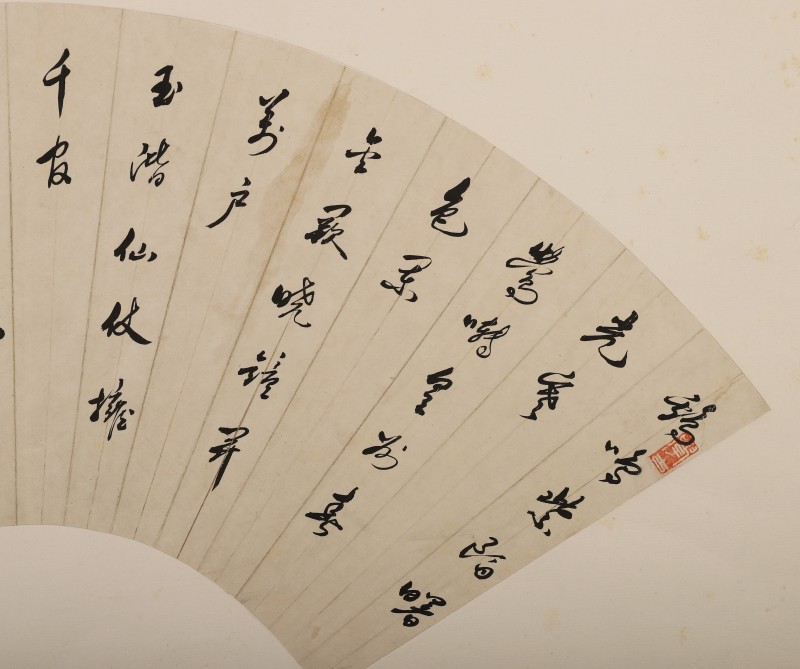 鷄鳴紫陌曙
光寒
鶯囀皇州春
色闌
金闕曉鐘開
萬戶
玉階仙仗擁
千官